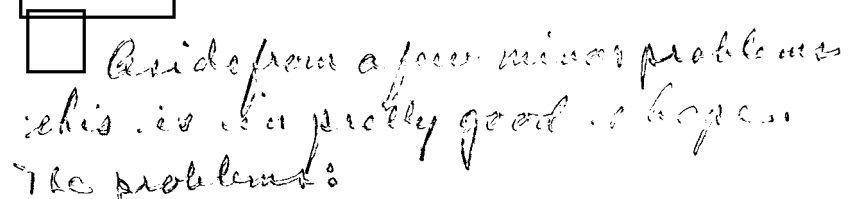 Aside from a few minor problems
this is in pretty good shape.
The problems: